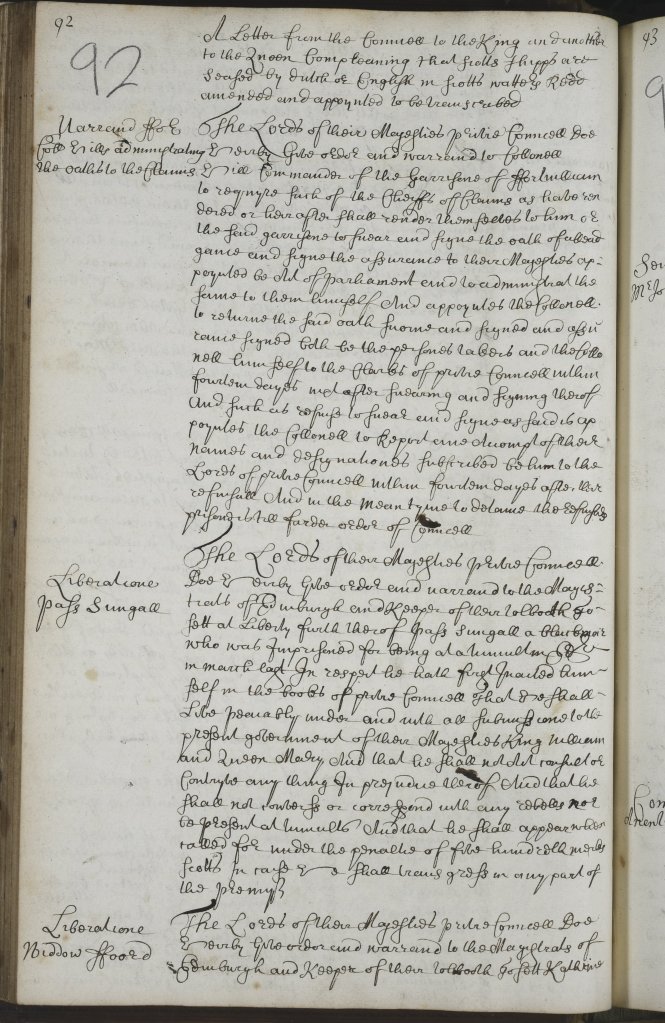 92
92
A Letter from the Councell to the King and another
to the Queen Compleaning that scotts shipps are
seased by dutch or English in scotts watters Read
amended and appoynted to be transcribed
Warrand ffor
Coll Hills administrating
the oaths to the Clanns
The Lords of their Majesties privie Councell Doe
Heirby Give order and warrand to Collonell
Hill Commander of the Garrisone of ffortwilliam
to requyre such of the Cheiffs of Clanns as have ren
dered or heirafter shall render themselves to him or
the said garrisone to swear and signe the oath of allead
gance and signe the assurance to their Majesties ap-
poynted be Act of parliament and to administrat the
same to them himself And appoyntes the Collonell
to returne the said oath sworne and signed and assu
rance signed both be the persones takers and the Collo
nell himself to the Clerks of privie Councell within
fourtein dayes nixt after swearing and signing therof
And such as refuise to swear and signe as said is ap
poyntes the Collonell to Report ane accompt of their
names and designationes subscribed be him to the
Lords of privie Councell within fourtein dayes after their
refusall And in the mean tyme to detaine the refusers
prisoners till farder order of Councell
Liberatione
pass Sungall
The Lords of their Majesties privie Councell
Doe Heirby Give order and warrand to the Magis-
trats of Edinburgh and Keeper of their tolbooth to
sett at Liberty furth therof pass Sungall a
who was Imprisoned for being at a tumult in
in march last In respect he hath first Inacted him
self in the books of privie Councell That He shall
Live peacably under and with all submissione to the
present government of their Majesties King William
and Queen Mary And that he shall not Act consult or
Contryve any thing In prejudice therof And that he
shall not converss or correspond with any rebells nor
be present at tumults And that he shall appear when
called for under the penaltie of five hundreth merks
scotts In caise He shall transgress in any part of
the premiss
Liberatione
Widdow ffoord
The Lords of their Majesties privie Councell Doe
Heirby Give order and warrand to the Magistrats of
Edinburgh and Keeper of their tolbooth to sett Kathrine
93